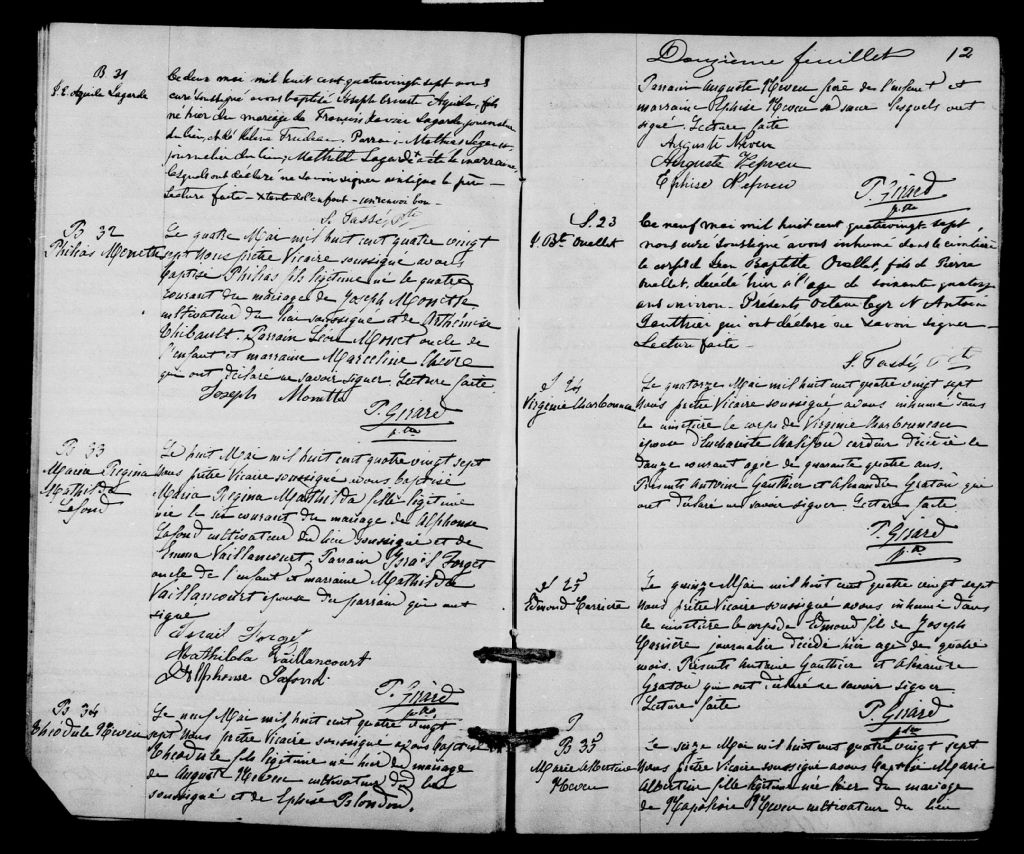 B 31
J. E. Aquila Lagarde
Ce deux mai mil huit cent quatrevingt sept nous
curé soussigné avons baptisé Joseph Ernest Aquila, fils
né hier du mariage de François Xavier Lagarde journalier
du lieu, et de Trudeau. Parrain Mathias Lagarde
journalier du lieu, Lagarde a été la marraine
Lesquels ont declaré ne savoir signer ainsi que le père
Lecture faite
S. Tassé, Ptre
B 32
Philias Monette
Le quatre Mai mil huit cent quatre vingt
sept Nous prêtre Vicaire soussigné avons
baptisé Philias fils légitime né le quatre
courant du mariage de Joseph Monette
cultivateur du lieu soussigné et de Arthémise
Thibault. Parrain Léon Monet oncle de
l'enfant et marraine Marceline
qui ont déclaré ne savoir signer. Lecture faite
Joseph Monette
T. Girard
ptre
B 33
Maria Regina
Mathilda
Lafond
Le huit Mai mil huit cent quatre vingt sept
Nous prêtre Vicaire soussigné avons baptisé
Maria Regina Matthilda fille légitime
née le six courant du mariage de Alphonse
Lafond cultivateur du lieu soussigné et de
Emma Vaillancourt, Parrain Israïl Forget
oncle de l'enfant et marraine Mathilda
Vaillancourt épouse du parrain qui ont
signé
Israïl Forget
Mathilda Vaillancourt
Alphonse Lafond
T. Girard
ptre
B 34
Théodule Neveu
Le neuf Mai mil huit cent quatre vingt
sept Nous prêtre Vicaire soussigné avons baptisé
Théodule fils légitime né hier du mariage
de Auguste Neveu cultivateur du lieu
soussigné et de Ephise Blondin.
Douzième feuillet 12
Parrain Auguste Neveu frère de l'enfant et
marraine Ephise Neveu sa sœur lesquels ont
signé. Lecture faite
Auguste Neveu
Auguste Nepveu
Ephise Nepveu
T. Girard
ptre
S. 23
J. Bte Ouellet
Ce neuf mai mil huit cent quatrevingt sept,
nous curé soussigné avons inhumé dans le cimetière
le corps de Jean Baptiste Ouellet, fils de Pierre
Ouellet, décédé hier à l'age de soixante quatorze
ans environ. Présents Octave Cyr & Antoine
Gauthier qui ont déclaré ne savoir signer
Lecture faite
S. Tassé, Ptre
S 24
Virginie Charbonneau
Le quatorze Mai mil huit cent quatre vingt sept
Nous prêtre Vicaire soussigné avons inhumé dans
le cimetière le corps de Virginie Charbonneau
épouse d'Euchariste décédée le
douze courant agée de quarante quatre ans.
Présents Antoine Gauthier et Alexandre Graton qui
ont déclaré ne savoir signer. Lecture faite
T. Girard
ptre
S 25
Edmond Carrière
Le quinze Mai mil huit cent quatre vingt sept
Nous prêtre Vicaire soussigné avons inhumé dans
le cimetière le corps de Edmond fils de Joseph
Carrière journalier décédé hier agé de quatre
mois. Présents Antoine Gauthier et Alexandre
Graton qui ont déclaré ne savoir signer.
Lecture faite
T. Girard
ptre
B 35
Marie Albertine
Neveu
Le seize Mai mil huit cent quatre vingt sept
Nous prêtre Vicaire soussigné avons baptisé Marie
Albertine fille légitime née hier du mariage
de Napoléon Neveu cultivateur du lieu